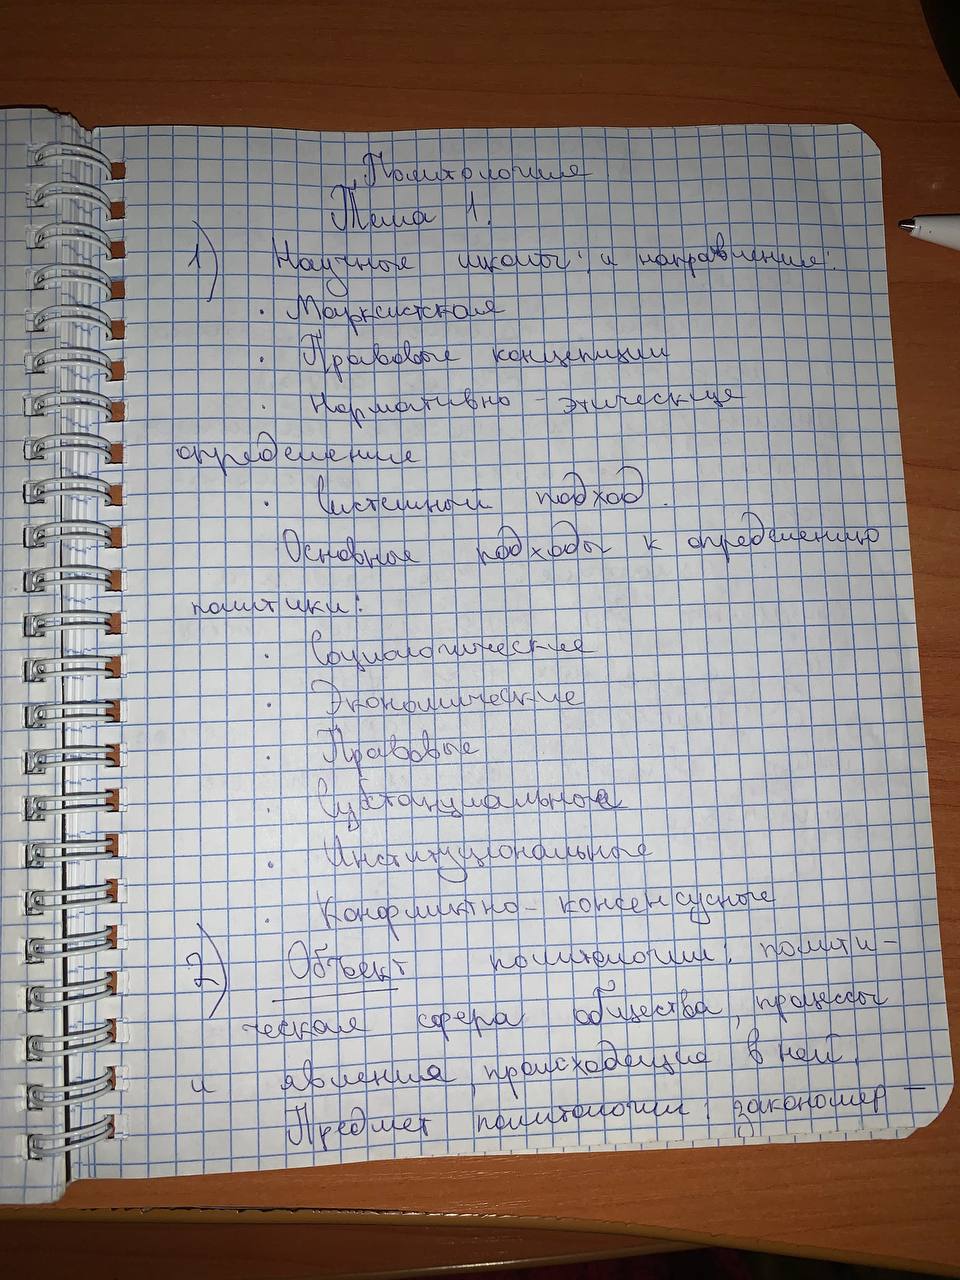 Политология
Тема 1.
1) Научные школы и направления:
· Марксистская
· Правовые концепции
· Нормативно-этическице
определение
· Системный подход.
Основные подходы к определению
политики:
· Социологические
· Экономические
· Правовые
· Субстанциальные
· Институциональные
· Конфликтно-консенсусные
2) Объект политологии: полити-
ческая сфера общества, процессы
и явления, происходящие в ней.
Предмет политологии: закономер-